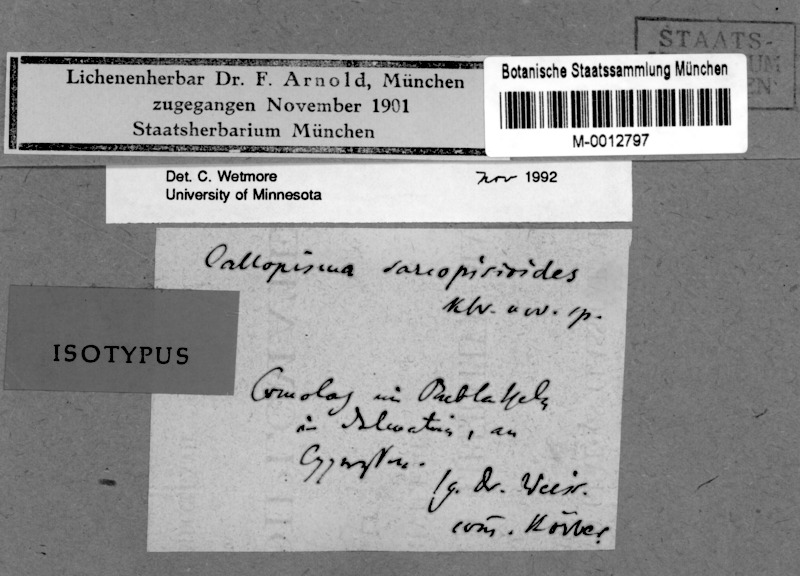 STAATS-
Lichenenherbar Dr. F. Arnold, München
zugegangen November 1901
Staatsherbarium München
Botanische Staatssammlung München
M-0012797
Det. C. Wetmore
Nov 1992
University of Minnesota
Callopisma sarcopisioides
Kbr. nov. sp.
ISOTYPUS
in Dalmatien, an
Cypressen.
lg. Dr. Weiss.
com. Körber